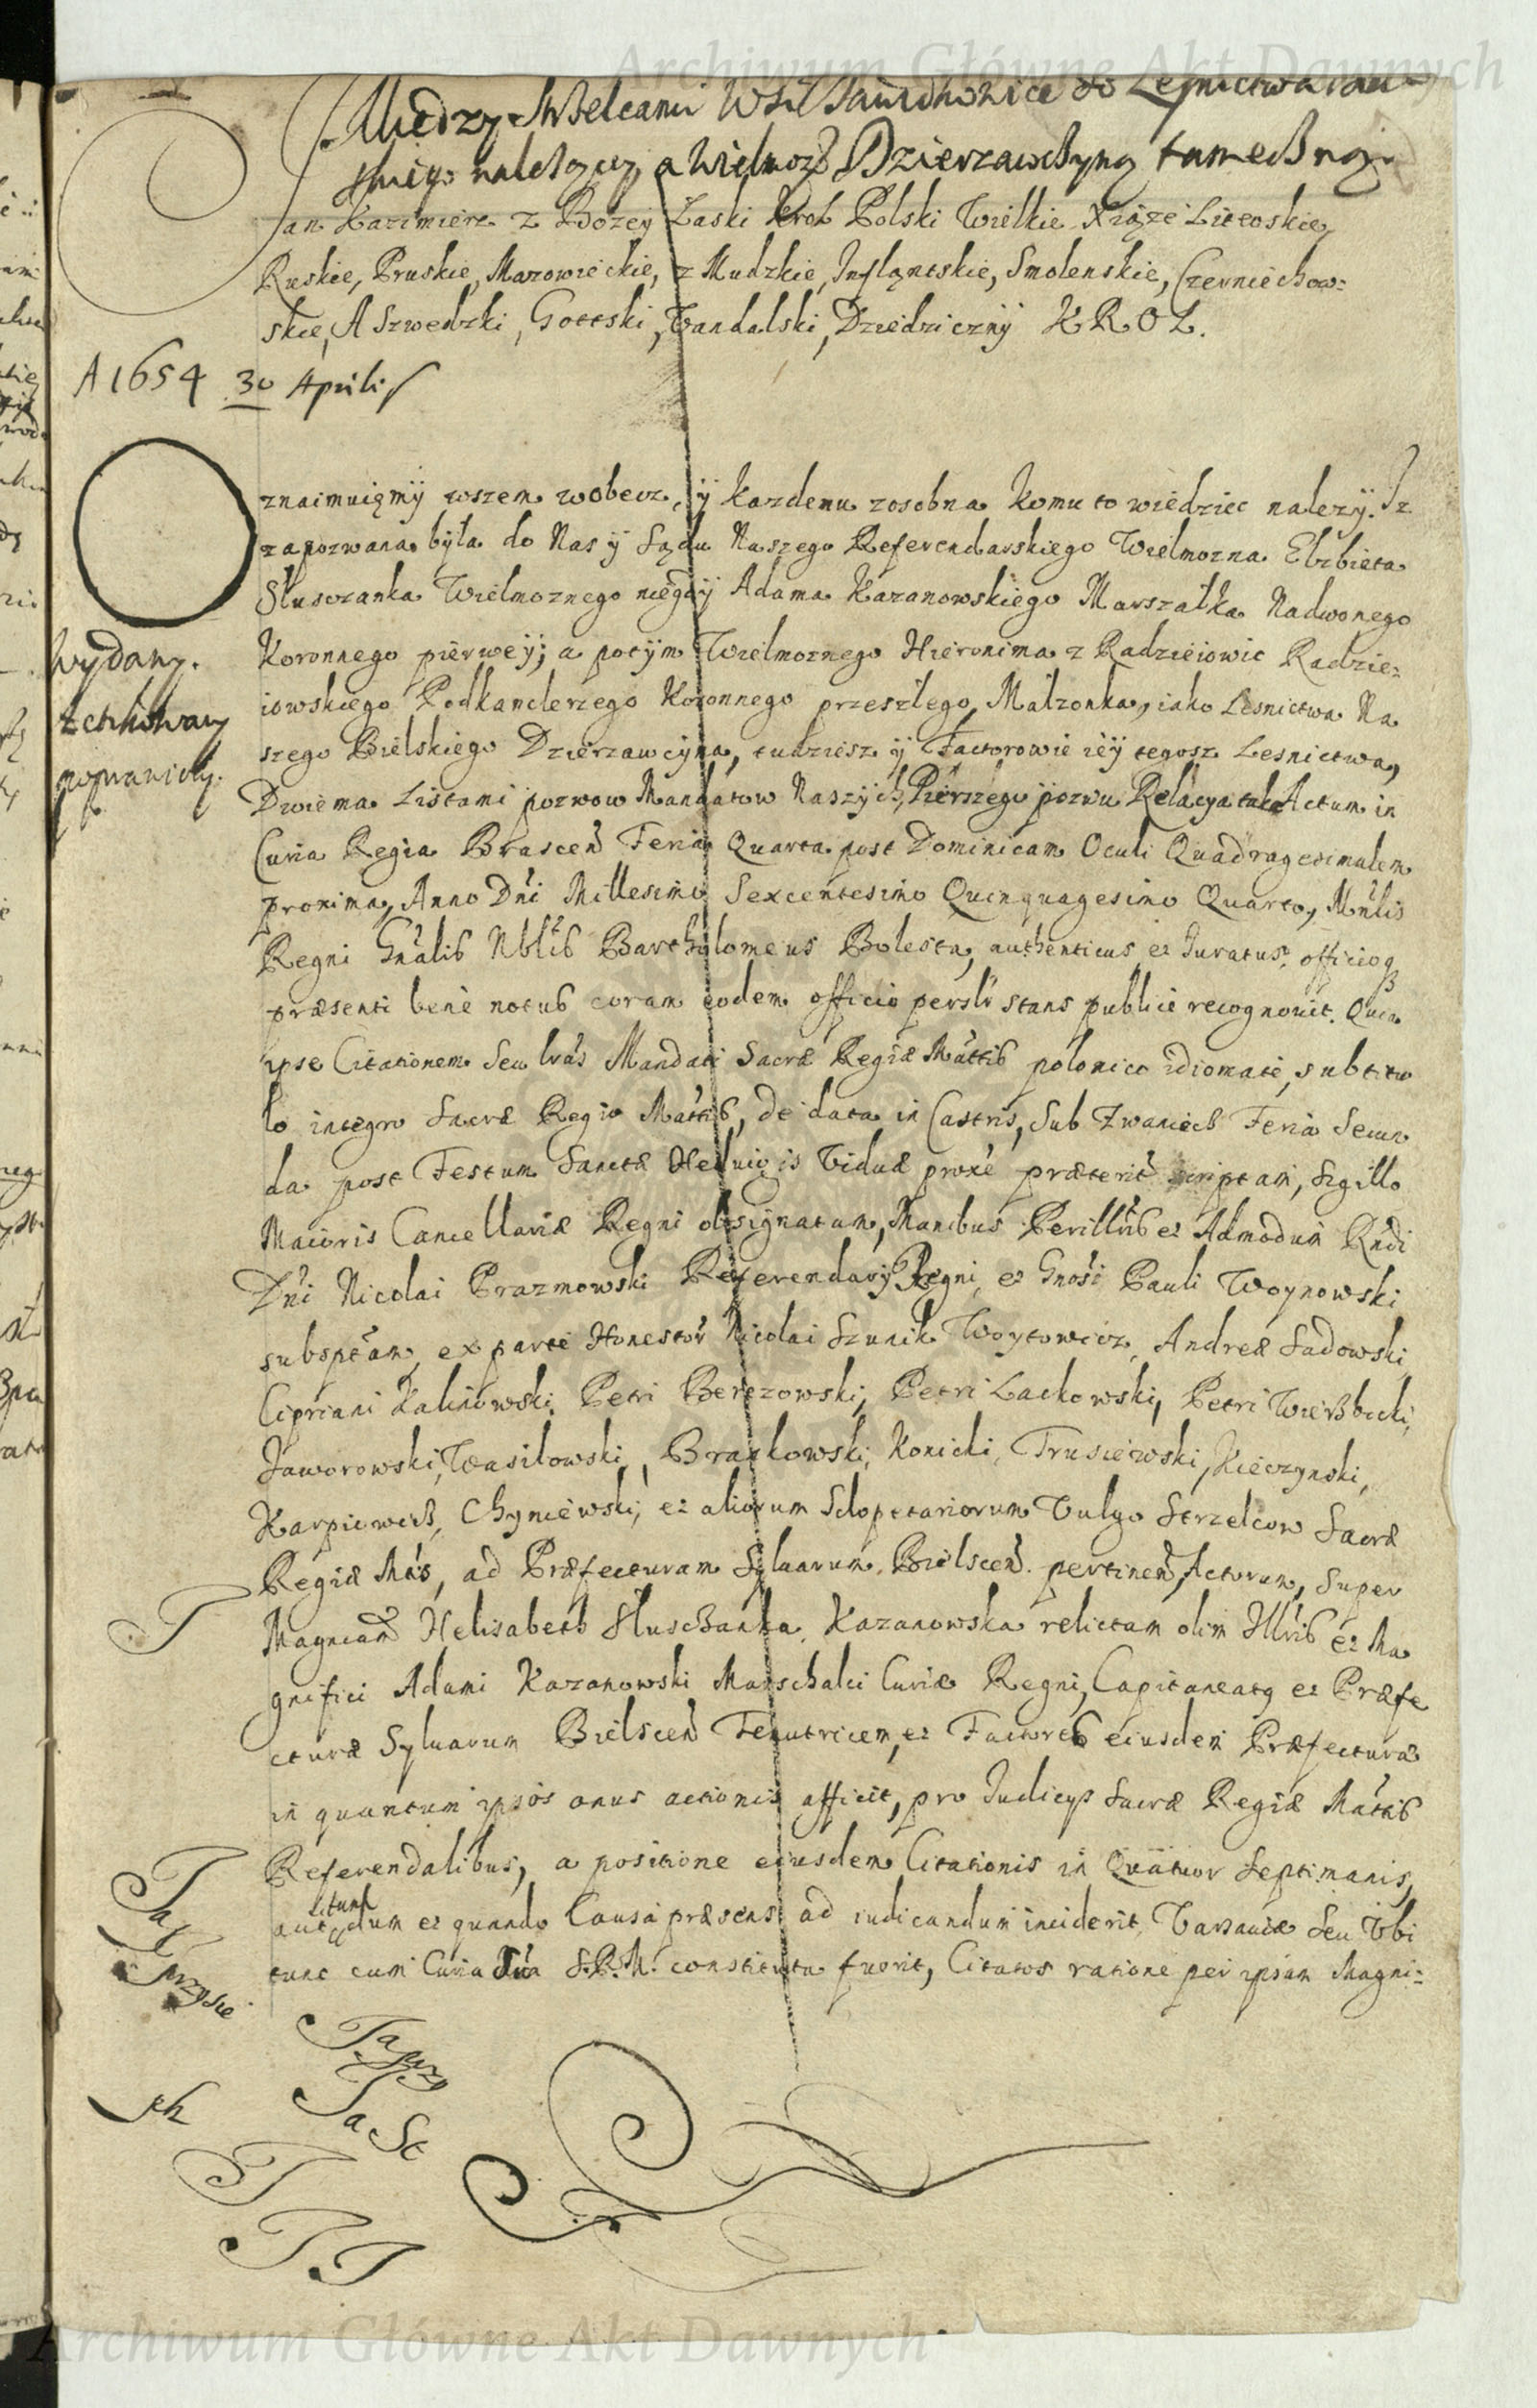 Archiwum Główne Akt Dawnych
Między Strzelcami Wsi do Leśnictwa
należący, a Wielmoż Dzierzawczyną tameczną
Jan Kazimierz z Bozey Łaski Krol Polski Wielkie Xiąze Litewskie,
Ruskie, Pruskie, Mazowieckie, zMudzkie, Inflantskie, Smolenskie, Czerniechow:
skie, A Szwedzki, Gottski, Vandalski, Dziedziczny KROL.
A 1654 30 Aprilis
O
znaimuięmÿ wszem wobecz, ÿ kazdemu zosobna komu to wiedziec nalezy. Iz
zapozwana była do Nas ÿ Sądu Naszego Referendarskiego Wielmozna Elzbieta
Słusczanka Wielmoznego niegdÿ Adama Kazanowskiego Marszałka Nadwonego
Koronnego pierweÿ; a potÿm Wielmoznego Hieronima z Radzieiowic Radzie:
iowskiego Podkanclerzego Koronnego przeszłego, Małzonka, iako Lesnictwa Na
szego Bielskiego Dzierzawcÿna, tudziesz ÿ Factorowie ieÿ tegosz Lesnictwa,
Dwiema Listami pozwow Mandatow Naszÿch, Pierszego pozwu Relacya taka Actum in
Curia Regia Brascen Feria Quarta post Dominicam Oculi Quadragesimalem
proxima, Anno Dni Millesimo Sexcentesimo Quinquagesimo Quarto, Mnlis
Regni Gnalis Nblis Bartholomeus Bolesta, authenticus et Juratus officioq
præsenti bene notus coram eodem officio perslr stans publice recognovit. Quia
ipse Citationem seu lras Mandati Sacræ Regiæ Mattis polonico idiomate, subtitu
lo integro Sacræ Regiæ Mattis, de data in Castris, sub Zwaniech Feria Secun
da post Festum Sanctæ Hedvigis Viduæ proxe præterit scriptam, sigillo
Maioris Cancellariæ Regni obsignatam, Manibus Perillris et Admodum Rndi
Dni Nicolai Prazmowski Referendarÿ Regni, et Gnosi Pauli Woynowski
subsptam, ex parte Honestor Nicolai Szunik Woytowicz, Andreæ Sadowski,
Cipriani Kalinowski, Petri Berezowski, Petri Lackowski, Petri Wierßbicki,
Jaworowski, Wasilowski, Brankowski, Konicki, Trusiewski, Kieczynski,
Karpiewicz, Chyniewski, et aliorum Sclopetariorum Vulgo Strzelcow Sacræ
Regiæ Mtis, ad Præfecturam Sylvarum Bielscen pertinen, Actorum, super
Magncam Helisabeth Słuschanka Kazanowska relictam olim Illris et Ma
gnifici Adami Kazanowski Marschalci Curiæ Regni, Capitaneatq et Præfe
cturæ Sylvarum Bielscen Tenutricem, et Factores eiusdem Præfecturæ
in quantum ipsos onus actionis afficit, pro Judicijs Sacræ Regiæ Mattis
Referendalibus, a positione eiusdem Citationis in Quatuor Septimanis,
aut dum et quando Causa præsens ad iudicandum inciderit, Varsaviæ seu Vbi
tunc cum Curia Sua S.R.M. constituta fuerit, Citatos ratione per ipsam Magni:
wydany.
T
Ja
Przysie
Ja St
T
T. T
Archiwum Główne Akt Dawnych